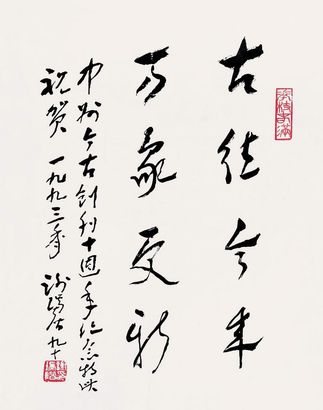 古往今来
万象更新
中州今古创刊十週年纪念特此
祝贺 一九九三年 谢瑞阶九十